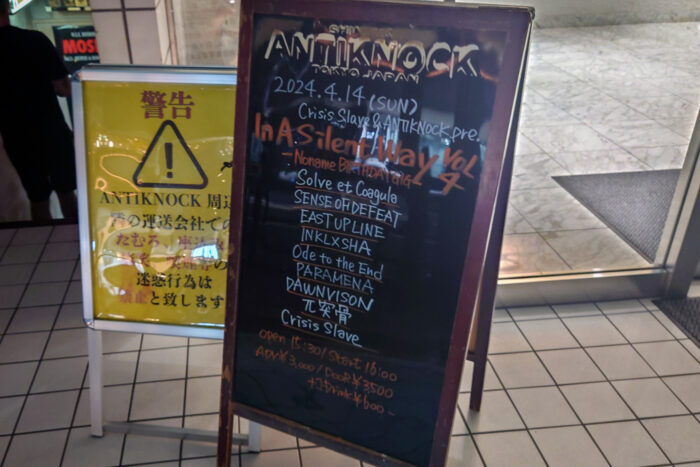 MOS
警告
ANTIKNOCK 周辺
の運送会社での
迷惑行為は
禁止と致します
SHIN
ANTIKNOCK
TOKYO JAPAN
2024.4.14 (SUN)
Crisis Slave & ANTIKNOCK pre.
In A Silent Way Vol
4
- Noname BIRTHDAY GIG
Solve et Coagula
SENSE OF DEFEAT
EAST UP LINE
INKLXSHA
Ode to the End
PARAMENA
DAWNVISON
兀突骨
Crisis Slave
open 15:30/Start 16:00
ADV¥3,000/DOOR¥3500
+1Drink¥600-